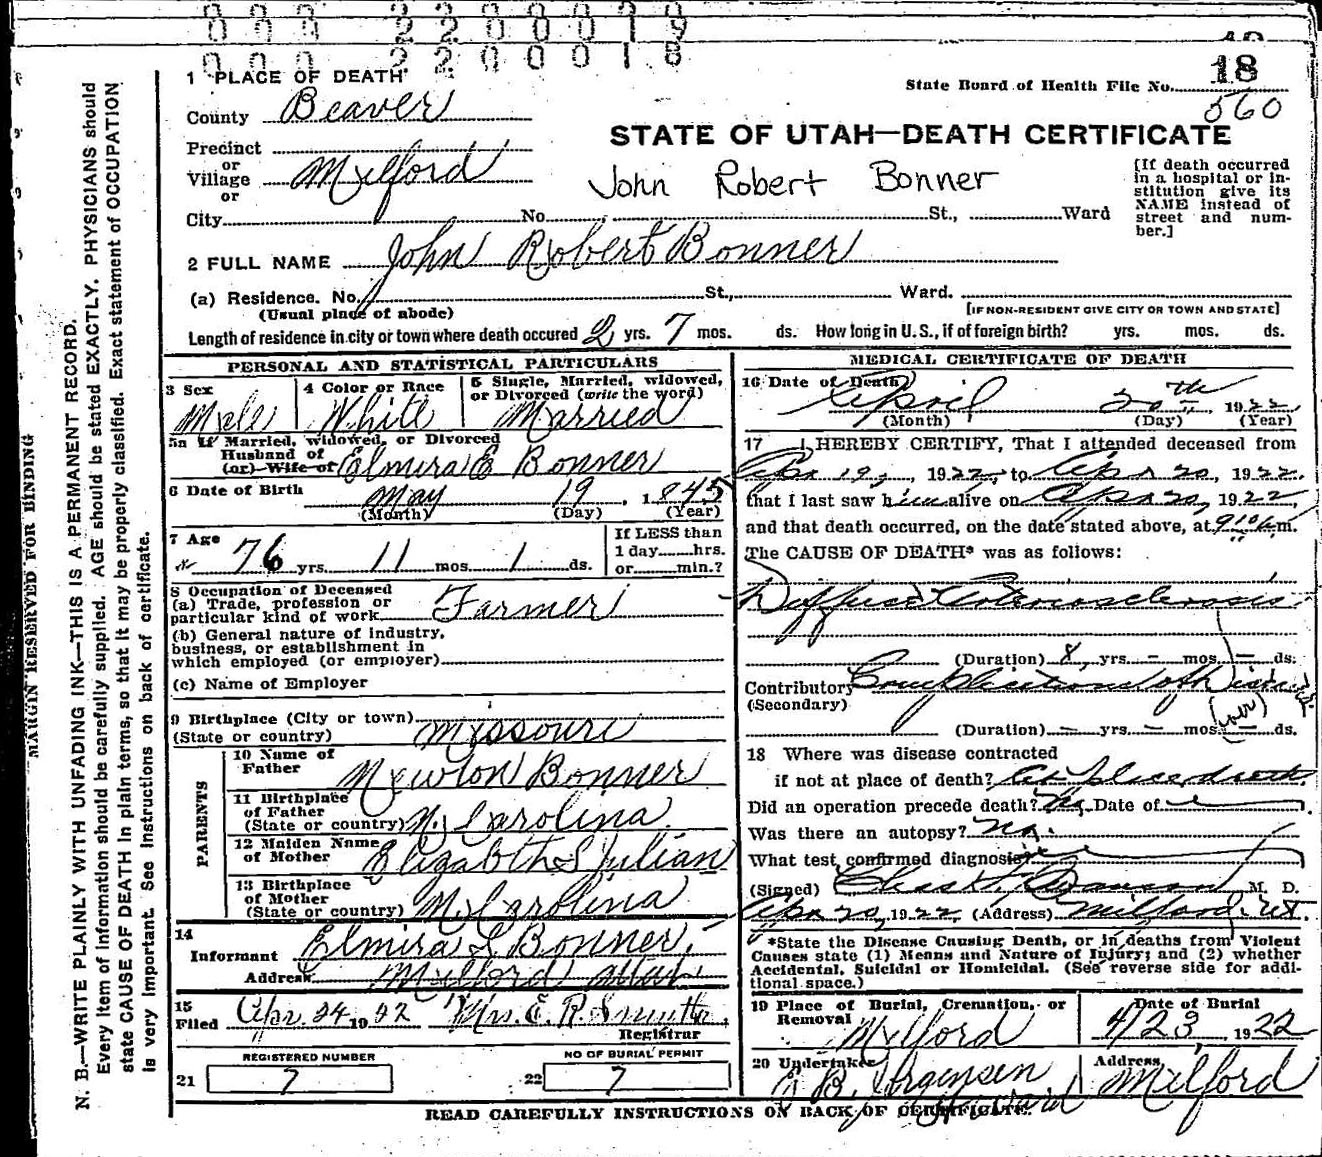 0 0 0 2 2 0 0 0 1 9
0 0 0 2 2 0 0 0 1 8
18
State Board of Health File No. 560
1 PLACE OF DEATH
County Beaver
STATE OF UTAH—DEATH CERTIFICATE
Precinct
or
Village Milford
or
John Robert Bonner
[If death occurred
in a hospital or in-
stitution give its
NAME instead of
street and num-
ber.]
City No. St., Ward
2 FULL NAME John Robert Bonner
(a) Residence. No. St., Ward.
(Usual place of abode) [IF NON-RESIDENT GIVE CITY OR TOWN AND STATE]
Length of residence in city or town where death occured 2 yrs. 7 mos. ds. How long in U. S., if of foreign birth? yrs. mos. ds.
PERSONAL AND STATISTICAL PARTICULARS
3 Sex
Male
4 Color or Race
White
5 Single, Married, widowed,
or Divorced (write the word)
Married
5a If Married, widowed, or Divorced
Husband of
(or) Wife of Elmira E Bonner
6 Date of Birth
May 19, 1845
(Month) (Day) (Year)
7 Age
76 yrs. 11 mos. 1 ds.
If LESS than
1 day hrs.
or min.?
8 Occupation of Deceased
(a) Trade, profession or
particular kind of work Farmer
(b) General nature of industry,
business, or establishment in
which employed (or employer)
(c) Name of Employer
9 Birthplace (City or town)
(State or country) Missouri
PARENTS
10 Name of
Father Newton Bonner
11 Birthplace
of Father
(State or country) N. Carolina
12 Maiden Name
of Mother Elizabeth S Julian
13 Birthplace
of Mother
(State or country) N. Carolina
14
Informant Elmira E Bonner
Address Milford Utah
15
Filed Apr. 24 1922 Mrs. E. R. Smith
Registrar
REGISTERED NUMBER
21 7
NO OF BURIAL PERMIT
22 7
MEDICAL CERTIFICATE OF DEATH
16 Date of Death
April 20th 1922
(Month) (Day) (Year)
17 I HEREBY CERTIFY, That I attended deceased from
Apr 19, 1922, to Apr 20, 1922.
that I last saw him alive on Apr 20, 1922,
and that death occurred, on the date stated above, at m.
The CAUSE OF DEATH* was as follows:
Diffused Arteriosclerosis
(Duration) 8 yrs. – mos. – ds.
Contributory Complications of
(Secondary) (over)
(Duration) – yrs. – mos. – ds.
18 Where was disease contracted
if not at place of death? At place death
Did an operation precede death? No. Date of
Was there an autopsy? No.
What test confirmed diagnosis?
(Signed) Chas M. D.
Apr 20, 1922, (Address) Milford, Ut.
*State the Disease Causing Death, or in deaths from Violent
Causes state (1) Means and Nature of Injury; and (2) whether
Accidental, Suicidal or Homicidal. (See reverse side for addi-
tional space.)
19 Place of Burial, Cremation, or
Removal
Milford
Date of Burial
4/23, 1922
20 Undertaker
B. Jorgensen
Address
Milford
READ CAREFULLY INSTRUCTIONS ON BACK OF CERTIFICATE.
MARGIN RESERVED FOR BINDING
N. B.—WRITE PLAINLY WITH UNFADING INK—THIS IS A PERMANENT RECORD.
Every item of information should be carefully supplied. AGE should be stated EXACTLY. PHYSICIANS should
state CAUSE OF DEATH in plain terms, so that it may be properly classified. Exact statement of OCCUPATION
is very important. See instructions on back of certificate.